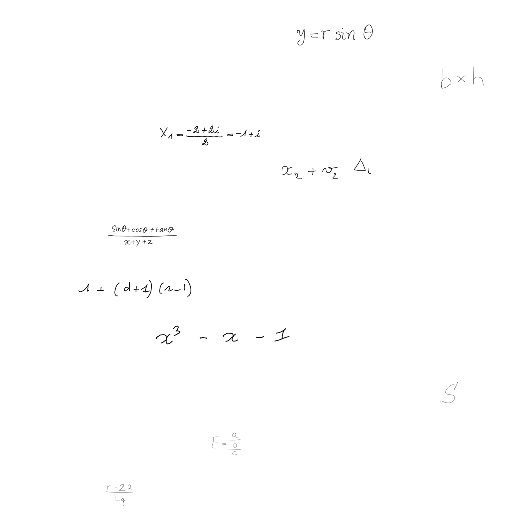 y = r sin θ
b × h
X₁ = (-2+2i)/2 = -1+i
x₂ + v₂ Δᵢ
(sin θ + cos θ + tan θ)/(x+y+z)
1 + (d+1)(n-1)
x³ - x - 1
S